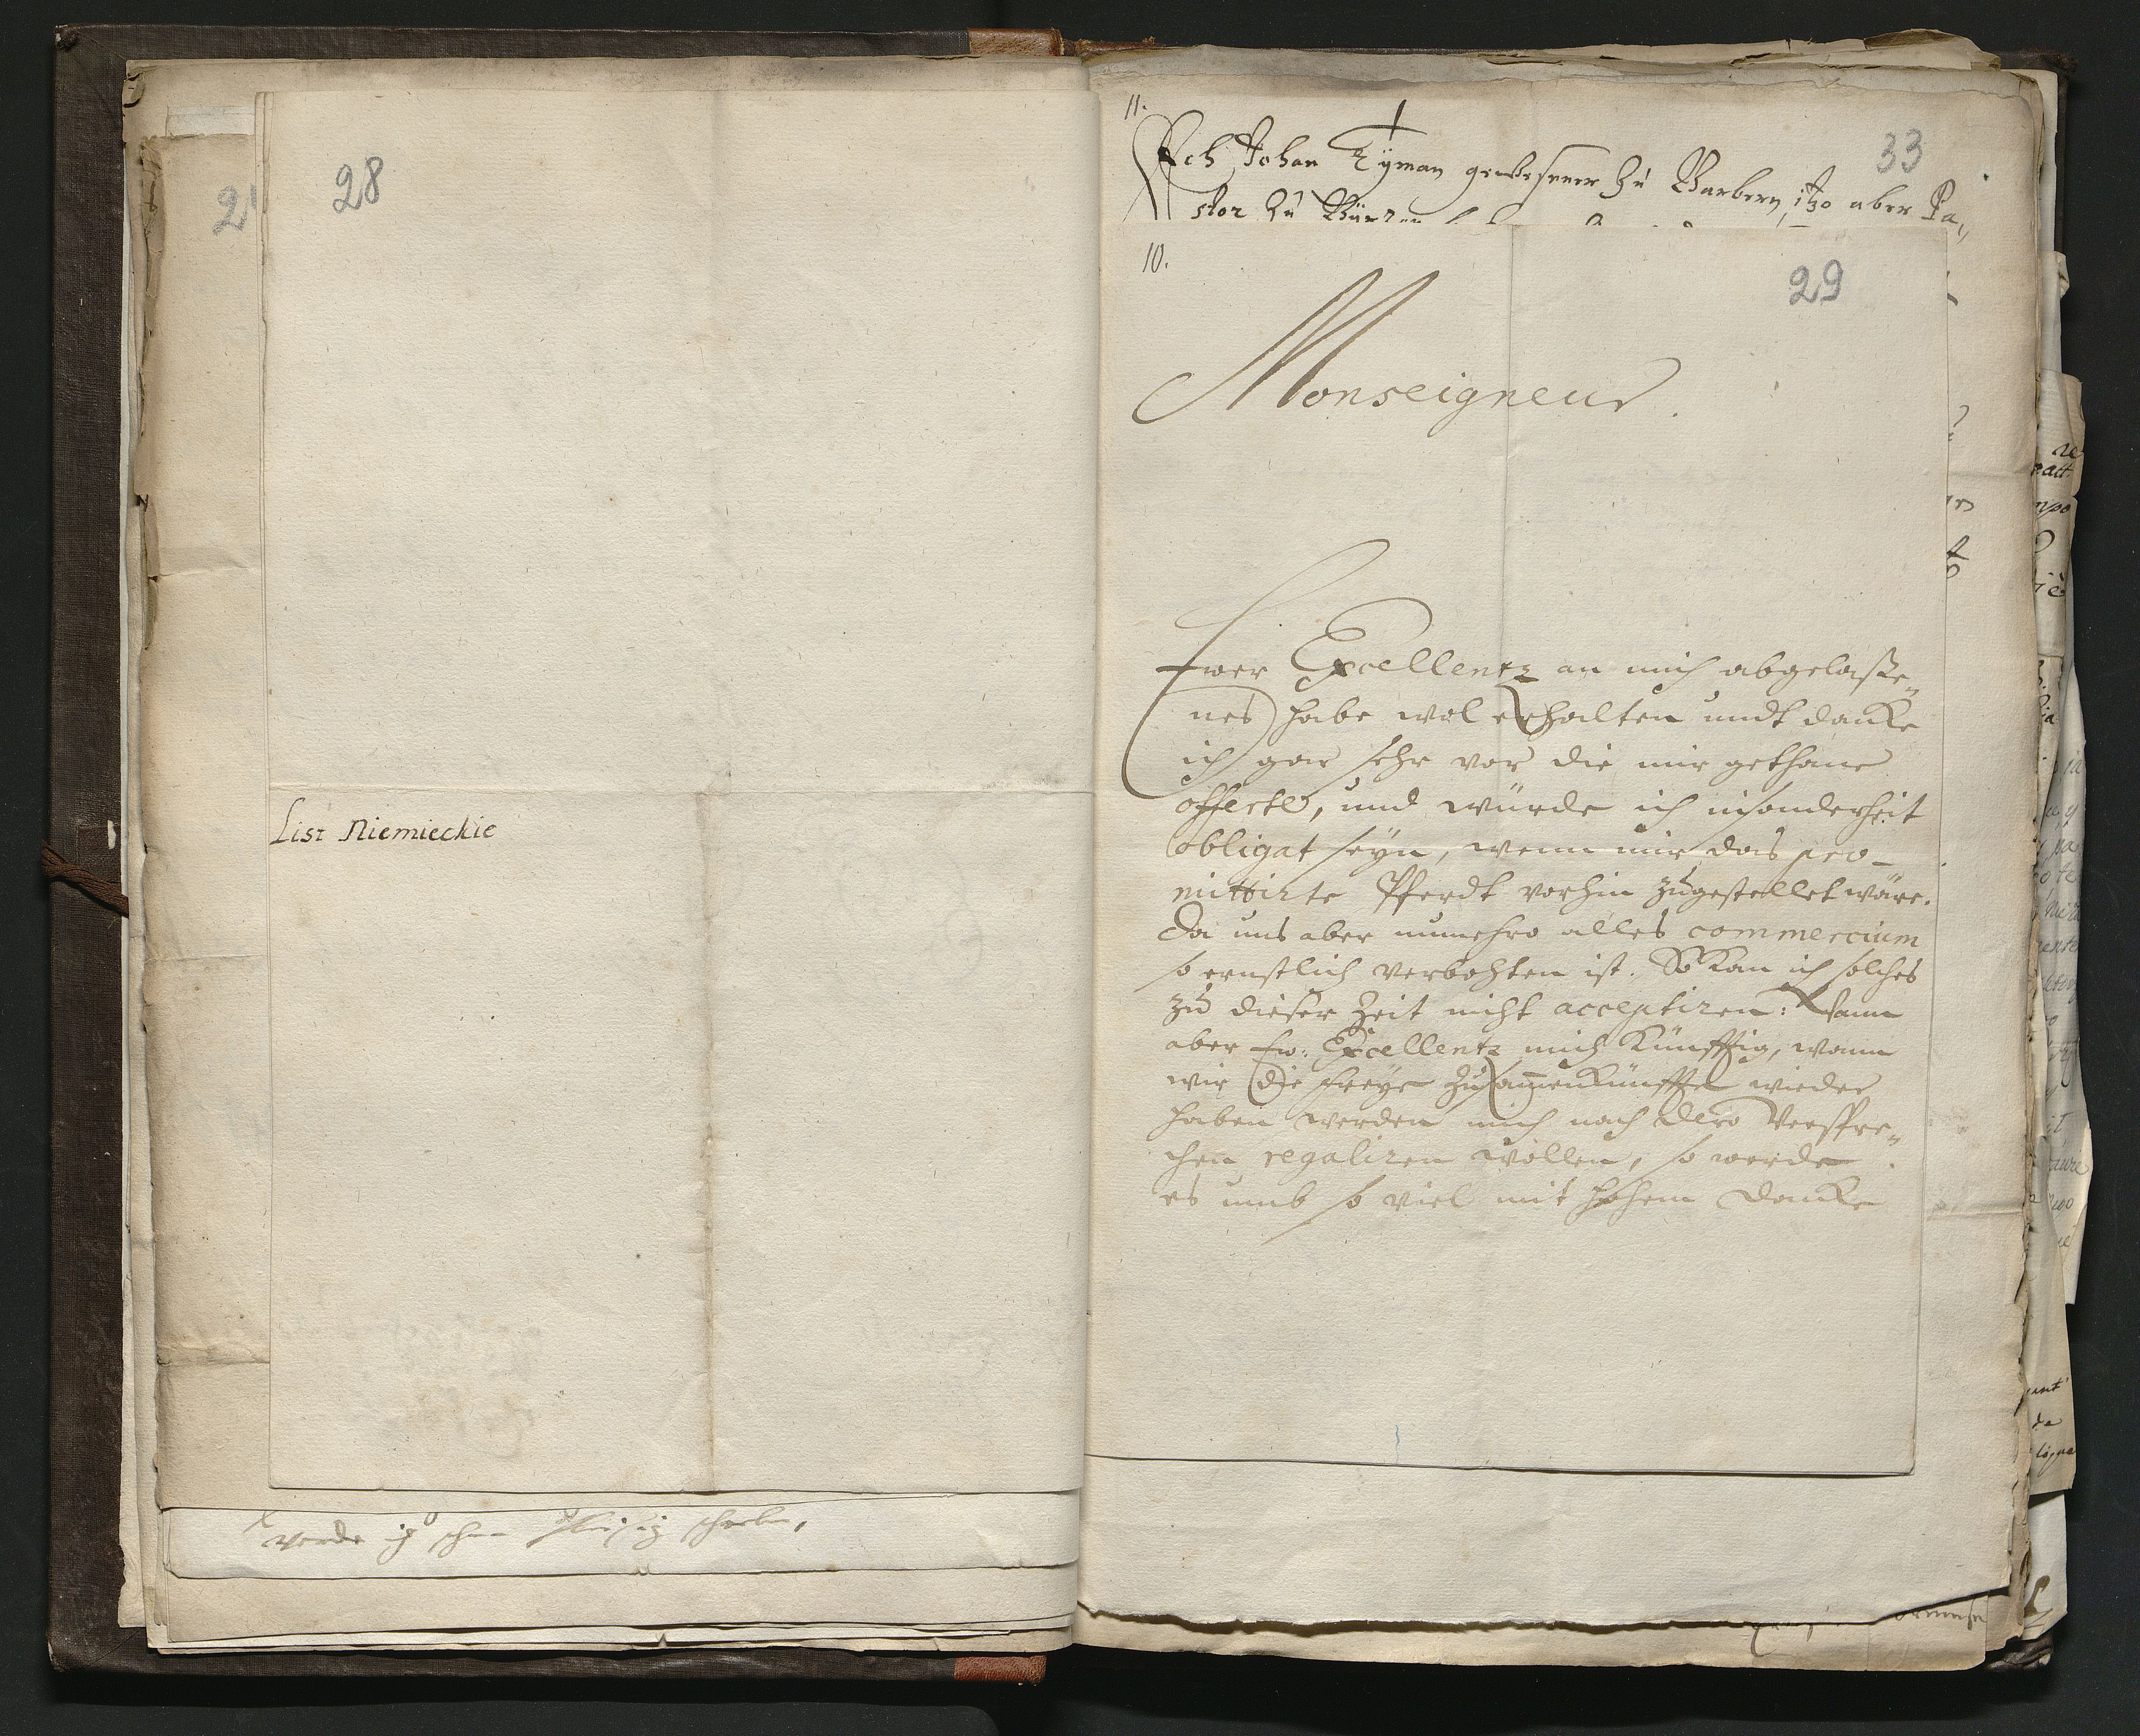 28
List Niemieckie
werde ich
11.
33
Ich Johan Ryman gewesener zu Barbern itzo aber Pa„
stor zu
10.
29
Monseigneur.
Ewer Excellentz an mich abgelaße„
nes habe wol erhalten undt dancke
ich gar sehr vor die mir gethane
offerte, und würde ich insonderheit
obligat seyn, wenn mir das pro-
mittirte Pferdt vorhin zugestellet wäre.
Da uns aber nunmehro alles commercium
so ernstlich verbohten ist. So kan ich solches
zu dieser Zeit nicht acceptiren: Wann
aber Ew: Excellentz mich künfftig, wann
wir die freye Zusam̄enkünffte wieder
haben werden mich nach dero Verspre„
chen regaliren wollen, so werde
es umb so viel mit hohem Dancke